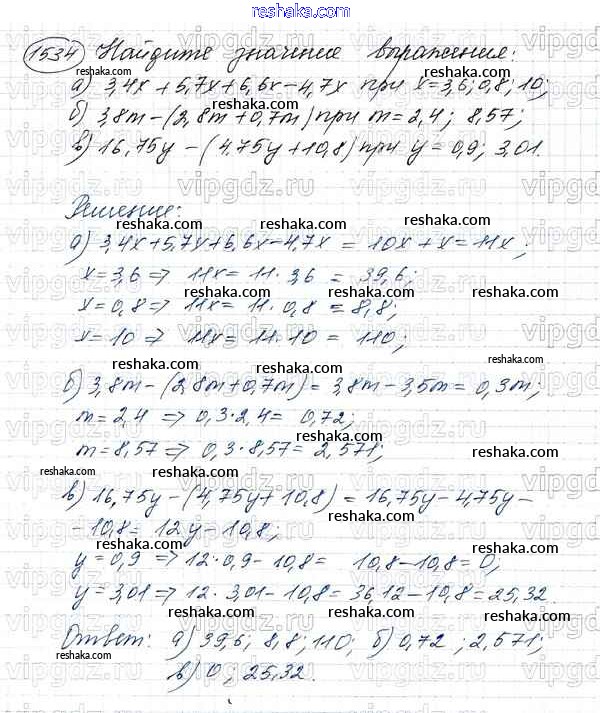 reshaka.com
1534 Найдите значение выражения:
а) 3,4x + 5,7x + 6,6x - 4,7x при x = 3,6; 0,8; 10;
б) 3,8m - (2,8m + 0,7m) при m = 2,4; 8,57;
в) 16,75y - (4,75y + 10,8) при y = 0,9; 3,01.
Решение:
а) 3,4x + 5,7x + 6,6x - 4,7x = 10x + x = 11x;
x = 3,6 => 11x = 11 · 3,6 = 39,6;
x = 0,8 => 11x = 11 · 0,8 = 8,8;
x = 10 => 11x = 11 · 10 = 110;
б) 3,8m - (2,8m + 0,7m) = 3,8m - 3,5m = 0,3m;
m = 2,4 => 0,3 · 2,4 = 0,72;
m = 8,57 => 0,3 · 8,57 = 2,571;
в) 16,75y - (4,75y + 10,8) = 16,75y - 4,75y -
- 10,8 = 12y - 10,8;
y = 0,9 => 12 · 0,9 - 10,8 = 10,8 - 10,8 = 0;
y = 3,01 => 12 · 3,01 - 10,8 = 36,12 - 10,8 = 25,32.
Ответ: а) 39,6; 8,8; 110; б) 0,72; 2,571;
в) 0; 25,32.